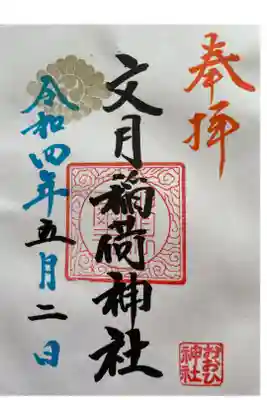 奉拝
文月稲荷神社
令和四年五月二日
みおひ
神社